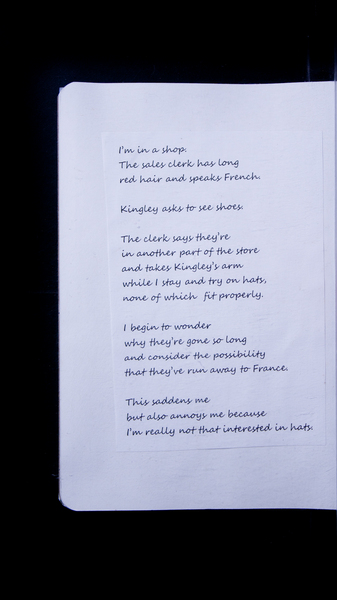 I'm in a shop.
The sales clerk has long
red hair and speaks French.
Kingley asks to see shoes.
The clerk says they're
in another part of the store
and takes Kingley's arm
while I stay and try on hats,
none of which fit properly.
I begin to wonder
why they're gone so long
and consider the possibility
that they've run away to France.
This saddens me
but also annoys me because
I'm really not that interested in hats.